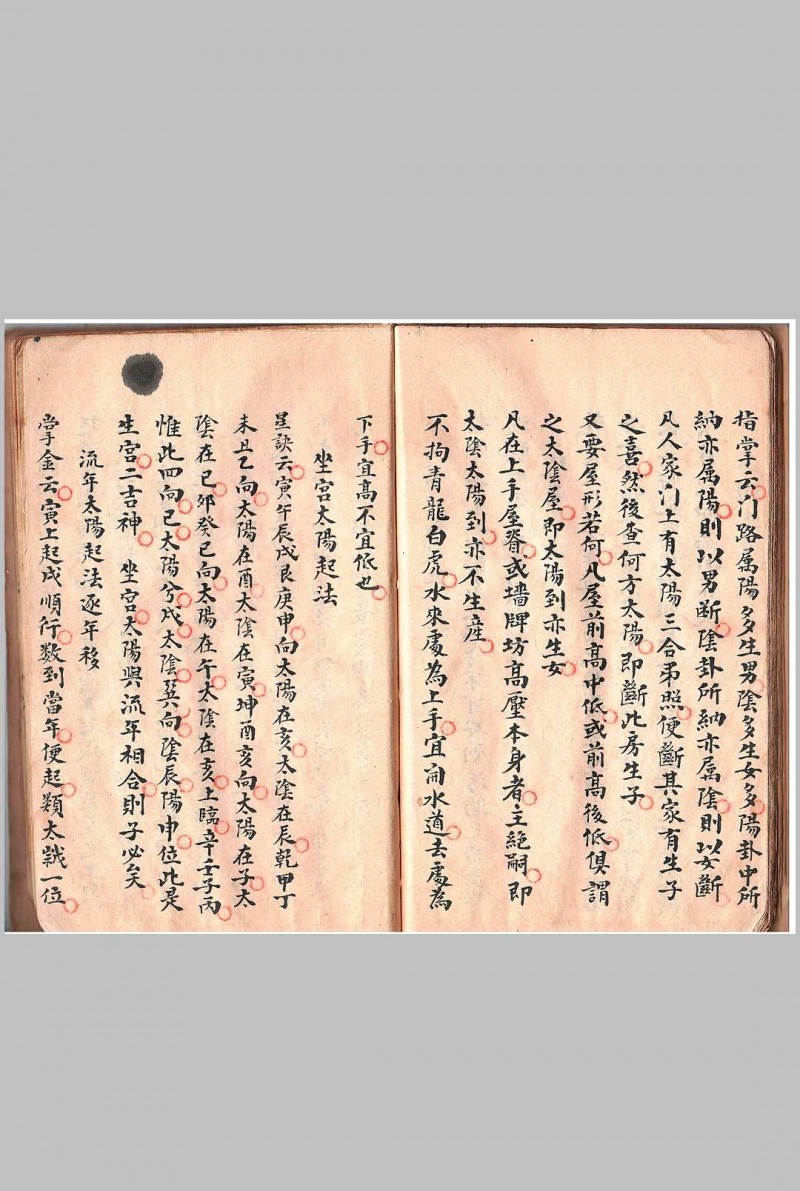 指掌云门路属陽多生男陰多生女多陽卦中所
納亦属陽則以男断陰卦所納亦属陰則以女斷
凡人家门上有太陽三合弟照便斷其家有生子
之喜然後查何方太陽即斷此房生子
又要屋形若何凡屋前高中低或前高後低俱謂
之太陰屋即太陽到亦生女
凡在上手屋脊或墻牌坊高壓本身者主絕嗣即
太陰太陽到亦不生産
不拘青龍白虎水來處為上手宜開水道去處為
下手宜高不宜低也
坐宮太陽起法
星訣云寅午辰戌艮庚申向太陽在亥太陰在辰乾甲丁
未丑乙向太陽在酉太陰在寅坤酉亥向太陽在子太
陰在巳卯癸巳向太陽在午太陰在亥上臨辛壬子丙
惟此四向己太陽兮戌太陰巽向陰辰陽申位此是
生宮二吉神 坐宮太陽與流年相合則子必矣
流年太陽起法逐年移
掌金云寅上起戌順行数到當年便起類太歲一位